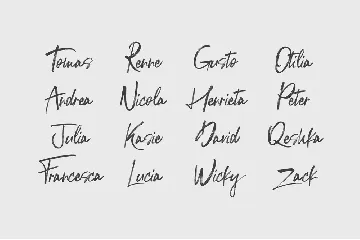 Tomas Renne Gusto Otilia
Andrea Nicola Henrieta Peter
Julia Kasie David Qeshka
Francesca Lucia Wicky Zack